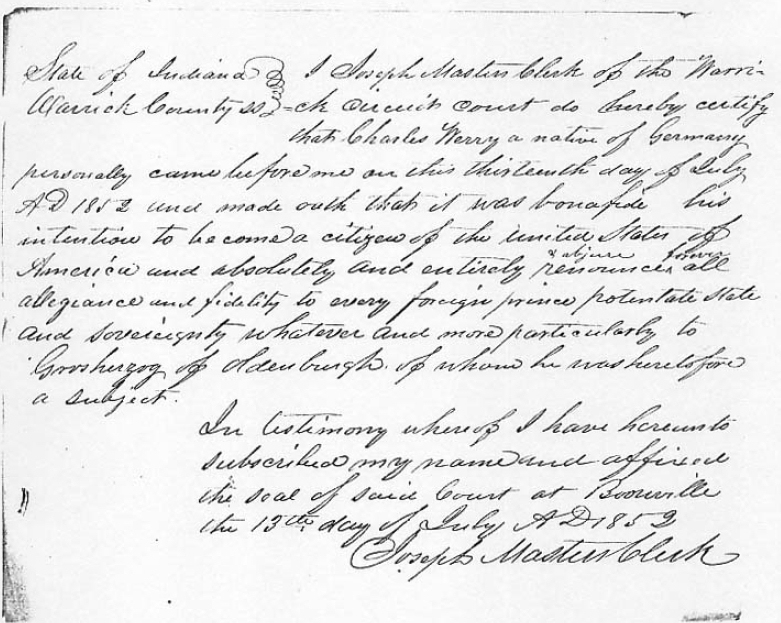 State of Indiana } I Joseph Masters Clerk of the Warri-
Warrick County ss } -ck circuit court do hereby certify
that Charles Werry a native of Germany
personally came before me on this thirteenth day of July
AD 1852 and made oath that it was bonafide his
intention to become a citizen of the united States of
& abjure forever
America and absolutely and entirely renounce all
allegiance and fidelity to every foreign prince potentate state
and sovereignty whatever and more particularly to
Grosherzog of oldenburgh of whom he was heretofore
a subject.
In testimony whereof I have hereunto
subscribed my name and affixed
the seal of said Court at Boonville
the 13th day of July AD 1852
Joseph Masters Clerk